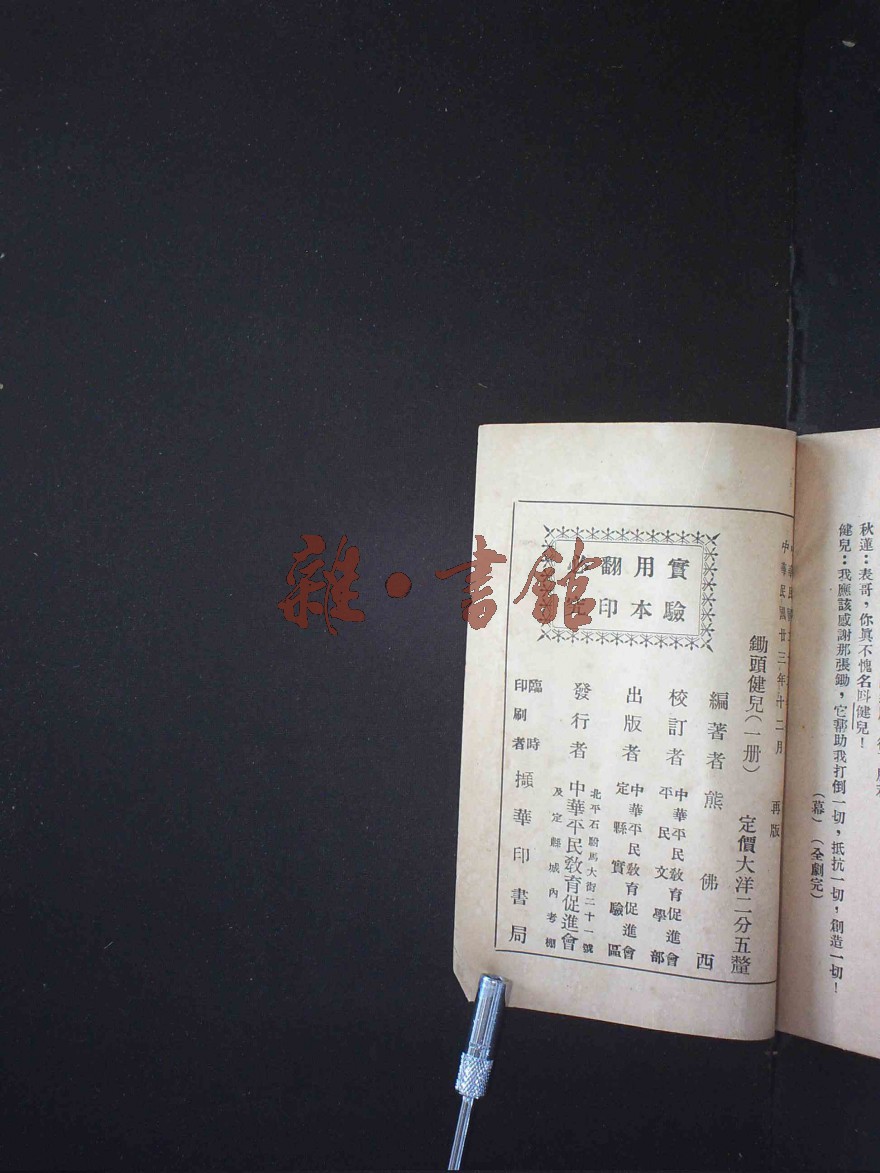 秋蓮：表哥，你眞不愧名叫健兒！
健兒：我應該感謝那張鋤，它幫助我打倒一切，抵抗一切，創造一切！
（幕）（全劇完）
中華民國廿三年十二月 再版
鋤頭健兒（一册） 定價大洋二分五釐
編著者 熊佛西
校訂者 中華平民敎育促進會
平民文學部
出版者 中華平民敎育促進會
定縣實驗區
發行者 中華平民敎育促進會
北平石駙馬大街二十一號
及定縣城內考棚
臨時
印刷者 擷華印書局
實驗
用本
翻印
雜·書館